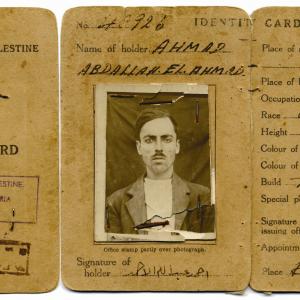 LESTINE
RD
ESTINE,
RIA
IDENTITY CARD
No.
Name of holder AHMAD
ABDALLAH EL AHMAD
Office stamp partly over photograph.
Signature of
holder
Place of
Place of
Occupation
Race
Height
Colour of
Colour of
Build
Special p
Signature
issuing off
Appointm
Place